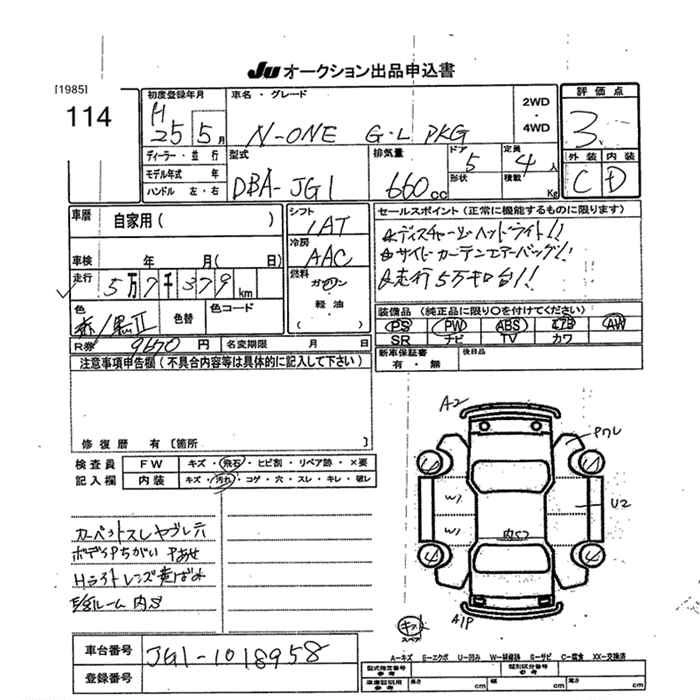 JU オークション出品申込書
[1985]
114
初度登録年月
H
25 5月
車名・グレード
N-ONE G・L PKG
2WD
・
4WD
評価点
3
外装 内装
C D
ディーラー・並行
モデル年式 年
ハンドル 左・右
型式
DBA-JG1
排気量
660cc
ドア 5
形状
定員 4人
積載 Kg
車歴 自家用( )
車検 年 月( 日)
走行 5万7千379km
色 赤/黒II
色替
色コード
R券 9670円
名変期限 月 日
シフト
IAT
冷房
AAC
燃料
ガソリン
・
軽油
( ・ )
セールスポイント(正常に機能するものに限ります)
ディスチャージヘッドライト!!
サイドカーテンエアーバッグ!!
走行5万キロ台!!
装備品(純正品に限り○を付けてください)
PS PW ABS エアB AW
SR ナビ TV カワ
新車保証書
有・無
後日品
注意事項申告欄(不具合内容等は具体的に記入して下さい)
修復歴 有[箇所 ]
検査員
記入欄
FW キズ・飛石・ヒビ割・リペア跡・×要
内装 キズ・汚れ・コゲ・穴・スレ・キレ・破レ
カーペットスレヤブレ穴
ボディPちがい Pあせ
Hライトレンズ黄ばみ
内S
A2
Pクレ
W1
W1
U2
A1P
キズ大
スペア
A-キズ E-エクボ U-凹み W-補修跡 S-サビ C-腐食 XX-交換済
車台番号 JG1-1018958
登録番号
型式指定番号
類別区分番号
参考
長さ cm
幅 cm
高さ cm